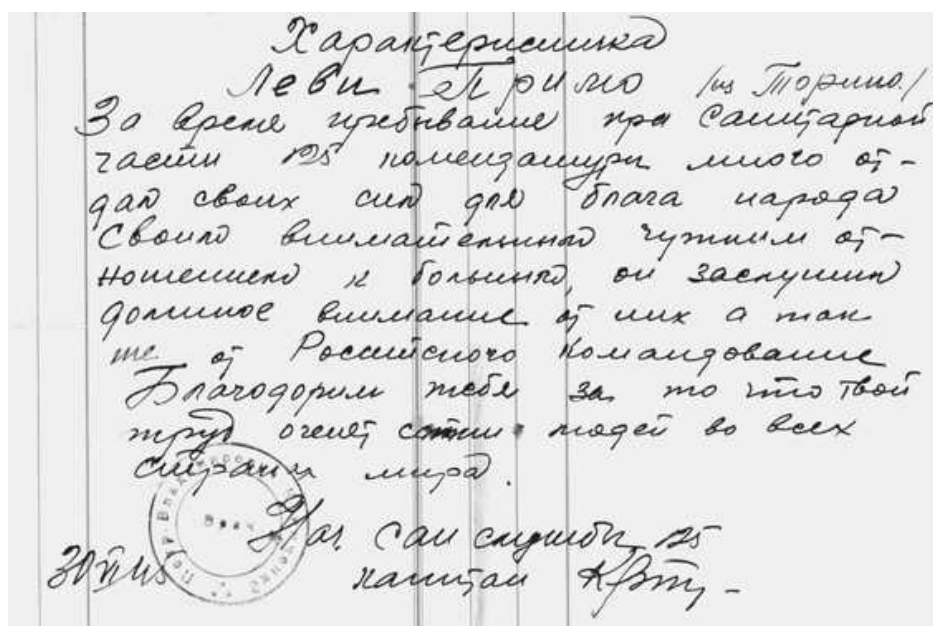 Характеристика
Леви Примо /из Торино./
За время пребывание при Санитарной
части 125 комендатуры много от-
дал своих сил для блага народа
Своим внимательным чутким от-
ношением к больным, он заслужил
должное внимание от них а так
же от Российского Командование
Благодорим тебя за то что твой
труд оценет сотни людей во всех
странах мира.
Нач. Сан службы 125
30 VI 45 капитан
Врач